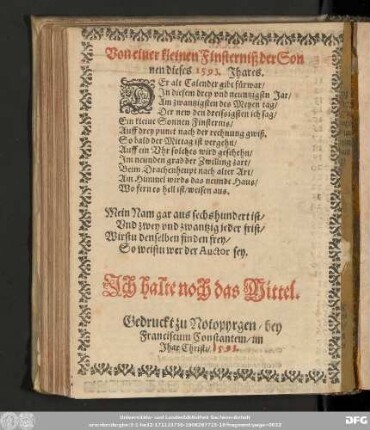 Von einer kleinen Finsterniß der Son
nen dieses 1593. Jhares.
DEr alt Calender gibt fürwar/
In diesem drey vnd neuntzigsten Jar/
Am zwantzigsten des Meyen tag/
Der new den dreissigsten ich sag/
Ein kleine Sonnen Finsternis/
Auff drey punct nach der rechnung gwiß,
So bald der Mittag ist vergehn/
Auff ein Vhr solches wird geschehn/
Im neunden grad der Zwilling zart/
Beim Drachenheupt nach alter Art/
Am Himmel wirds das neunde Haus/
Wo fern es hell ist/weisen aus.
Mein Nam gar aus sechshundert ist/
Vnd zwey vnd zwantzig jeder frist/
Wirstu denselben finden frey/
So weistu wer der Auctor sey.
Ich halte noch das Mittel.
Gedruckt zu Notopyrgen/ bey
Franciscum Constantem/im
Jhar Christi/1593.
Universitäts- und Landesbibliothek Sachsen-Anhalt
DFG